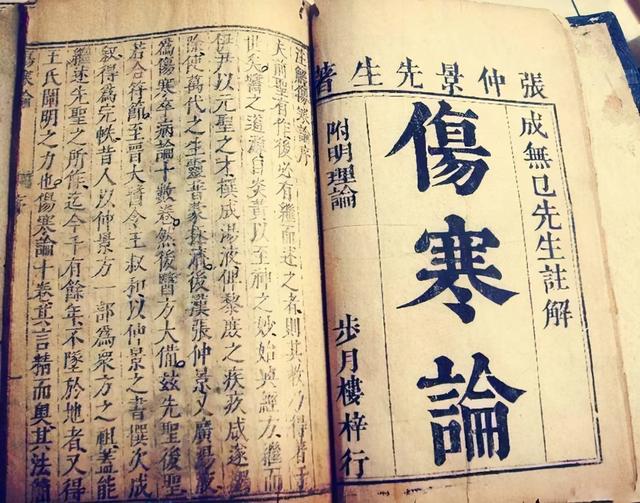 張仲景先生著
成無已先生註解
傷寒論
附明理論
步月樓梓行
註解傷寒論序
夫前聖有作後必有繼而述之者則其教乃得著于
世矣醫之道源自炎黃以至神之妙始興經方繼而
伊尹以元聖之才撰成湯液俾黎庶之疾疚咸遂蠲
除使萬代之生靈普蒙拯濟後漢張仲景又廣湯液
爲傷寒卒病論十數卷然後醫方大備茲先聖後聖
若合符節至晉太醫令王叔和以仲景之書撰次成
叙得爲完帙昔人以仲景方一部爲衆方之祖蓋能
繼述先聖之所作迄今千有餘年不墜於地者又得
王氏闡明之力也傷寒論十卷其言精而奧其法簡
傷寒論